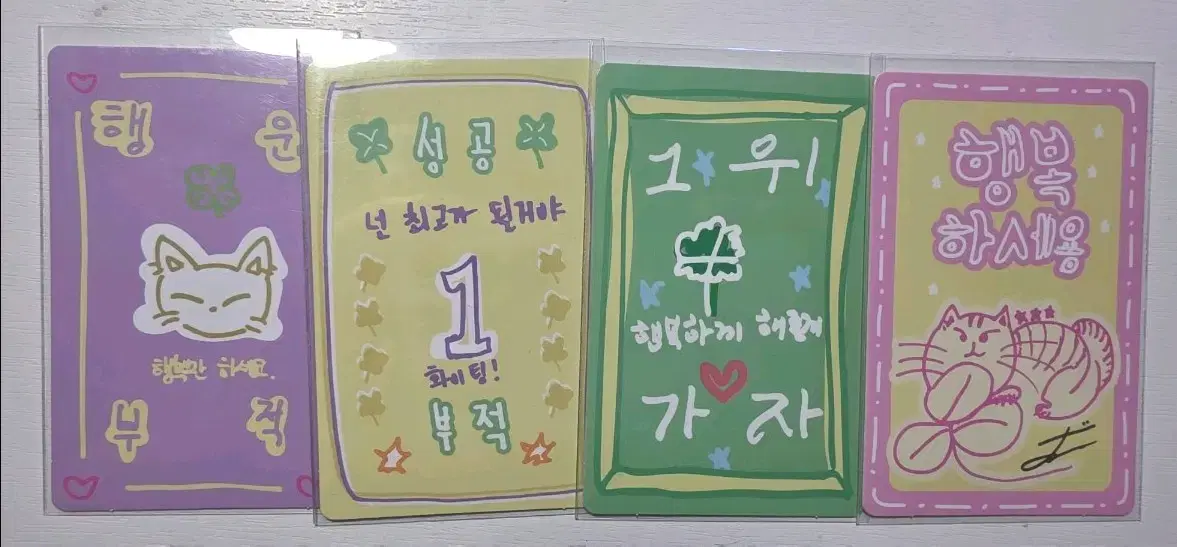 행 운
행복만 하세요.
부 적
성 공
넌 최고가 될거야
1
화이팅!
부 적
1 위
행복하게 해줄게
가 자
행복
하세용